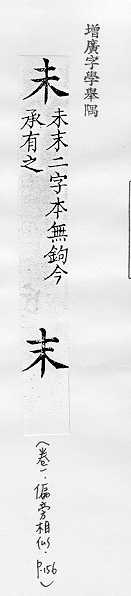 增廣字學舉隅
未
未末二字本無鉤今
承有之
末
（卷一．偏旁相似．P.156）